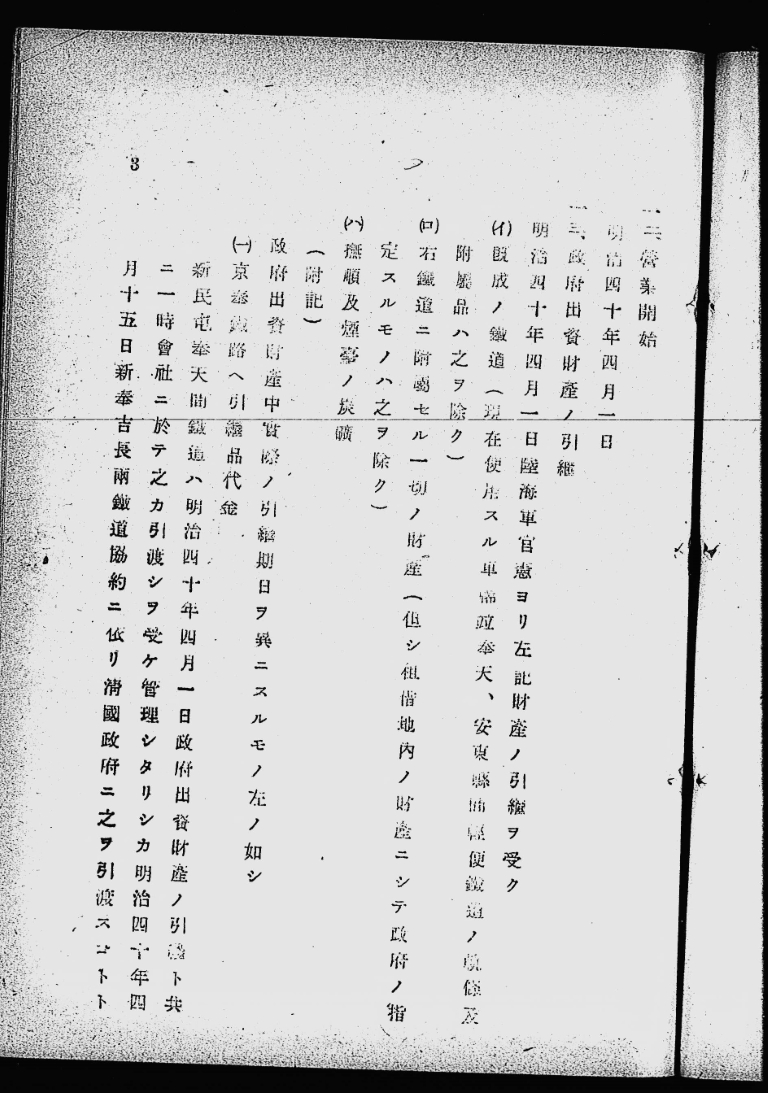 二、營業開始
明治四十年四月一日
三、政府出資財產ノ引繼
明治四十年四月一日陸海軍官憲ヨリ左記財產ノ引繼ヲ受ク
(イ)既成ノ鐵道（現在使用スル車輛竝奉天、安東縣間輕便鐵道ノ軌條及
附屬品ハ之ヲ除ク）
(ロ)右鐵道ニ附屬セル一切ノ財產（但シ租借地內ノ財產ニシテ政府ノ指
定スルモノハ之ヲ除ク）
(ハ)撫順及煙臺ノ炭礦
（附記）
政府出資財產中實際ノ引繼期日ヲ異ニスルモノ左ノ如シ
(一)京奉鐵路ヘ引繼品代金
新民屯奉天間鐵道ハ明治四十年四月一日政府出資財產ノ引繼ト共
ニ一時會社ニ於テ之カ引渡シヲ受ケ管理シタリシカ明治四十年四
月十五日新奉吉長兩鐵道協約ニ依リ淸國政府ニ之ヲ引渡スコトト
3